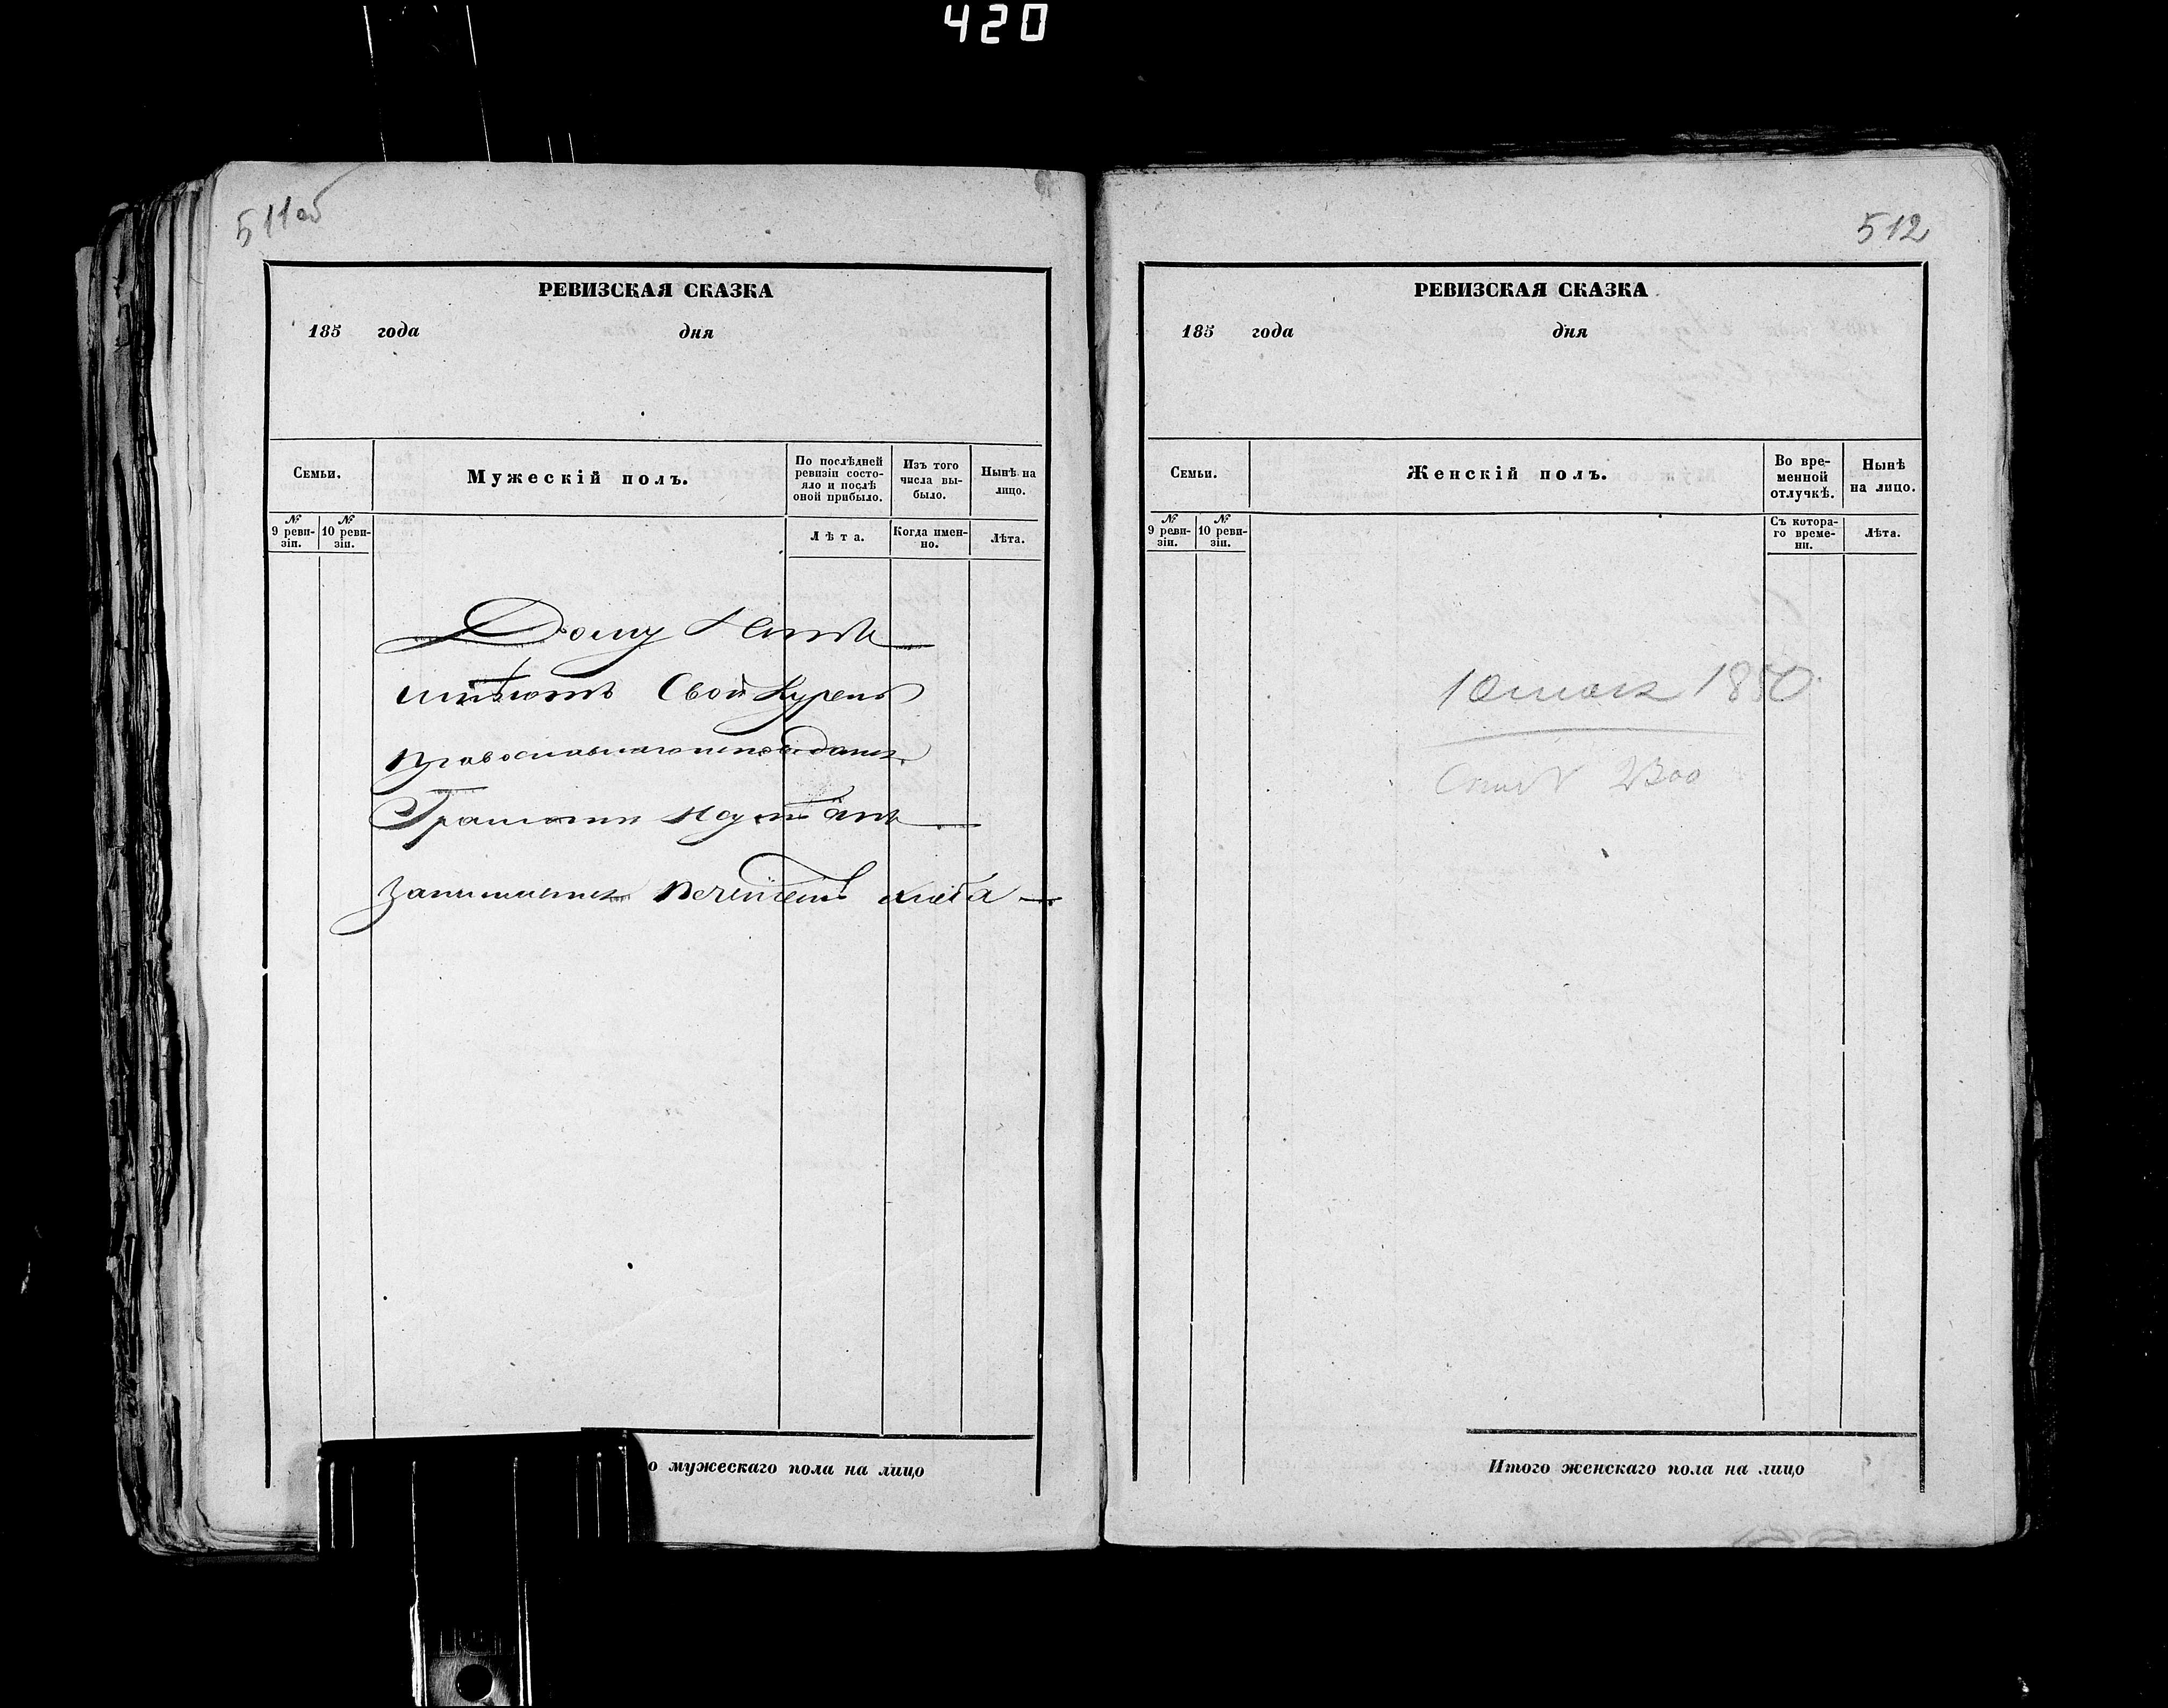 420
511об
РЕВИЗСКАЯ СКАЗКА
185 года дня
Семьи.
Мужескій полъ.
По послѣдней ревизіи состо-
яло и послѣ
оной прибыло.
Изъ того
числа вы-
было.
Нынѣ на
лицо.
№
9 реви-
зіи.
№
10 реви-
зіи.
Лѣта.
Когда имен-
но.
Лѣта.
Дому
имѣютъ Свой Курень
православнаго исповѣданія
Грамоти
Занимается печеніемъ хлѣба
о мужескаго пола на лицо
512
РЕВИЗСКАЯ СКАЗКА
185 года дня
Семьи.
Женскій полъ.
Во вре-
менной
отлучкѣ.
Нынѣ
на лицо.
№
9 реви-
зіи.
№
10 реви-
зіи.
Съ котора-
го време-
ни.
Лѣта.
Итого женскаго пола на лицо